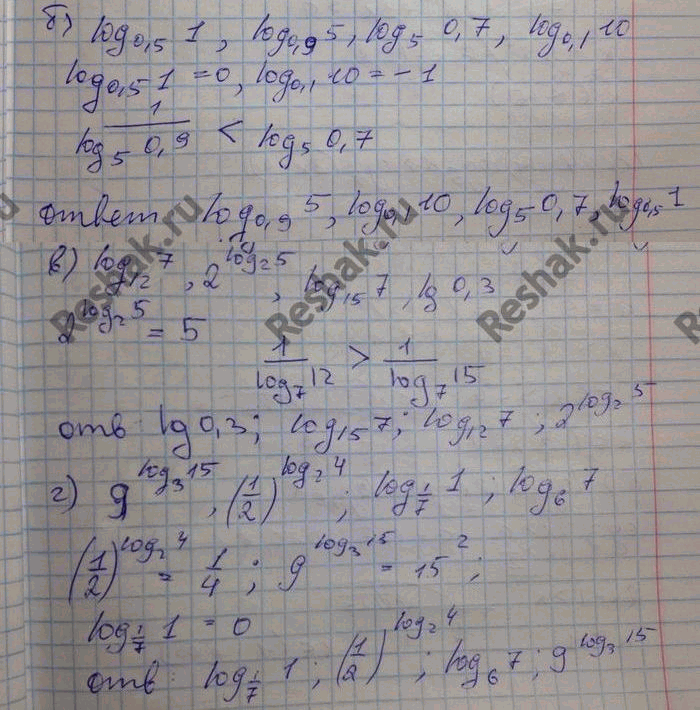 б) log₀,₅ 1, log₀,₉ 5, log₅ 0,7, log₀,₁ 10
log₀,₅ 1 = 0, log₀,₁ 10 = -1
1/(log₅ 0,9) < log₅ 0,7
ответ log₀,₉ 5, log₀,₁ 10, log₅ 0,7, log₀,₅ 1
в) log₁₂ 7, 2^(log₂ 5), log₁₅ 7, lg 0,3
2^(log₂ 5) = 5
1/(log₇ 12) > 1/(log₇ 15)
отв lg 0,3; log₁₅ 7; log₁₂ 7; 2^(log₂ 5)
г) 9^(log₃ 15), (1/2)^(log₂ 4); log_(1/7) 1; log₆ 7
(1/2)^(log₂ 4) = 1/4; 9^(log₃ 15) = 15²;
log_(1/7) 1 = 0
отв log_(1/7) 1; (1/2)^(log₂ 4); log₆ 7; 9^(log₃ 15)
Reshak.ru
Reshak.ru
Reshak.ru